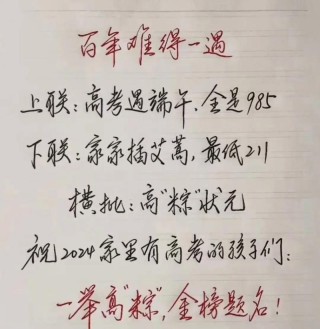 百年难得一遇
上联：高考遇端午，全是985
下联：家家插艾蒿，最低211
横批：高“粽”状元
祝2024家里有高考的孩子们：
一举高“粽”，金榜题名！